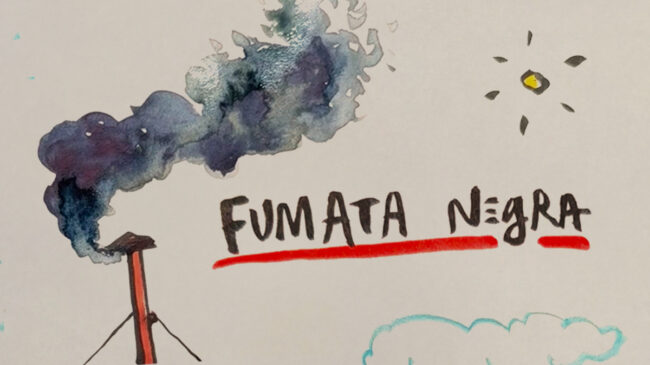 FUMATA NEgRA